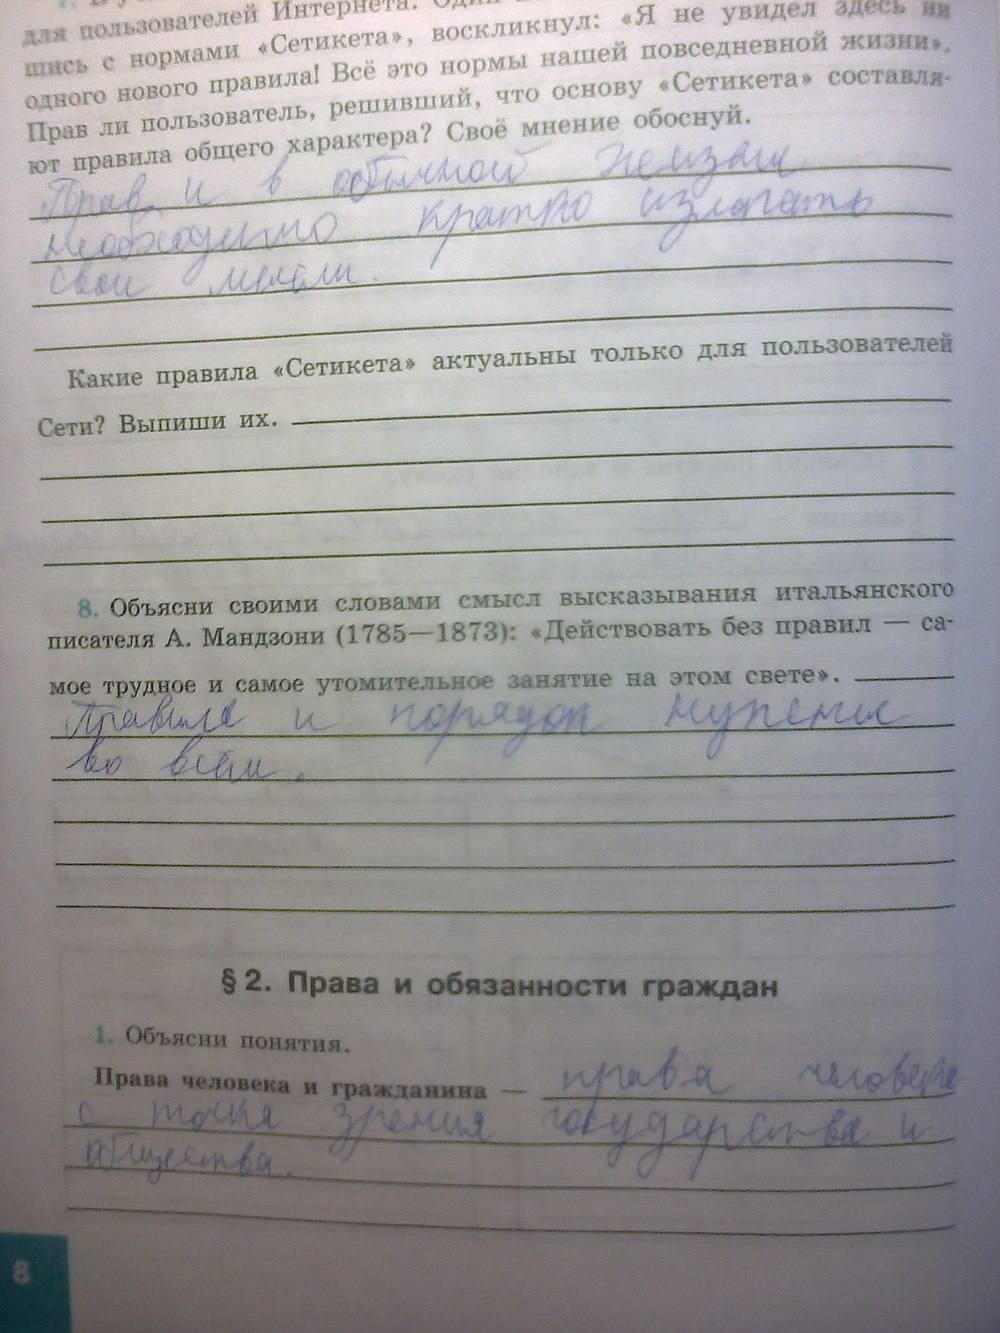 для пользователей Интернета. Один
шись с нормами «Сетикета», воскликнул: «Я не увидел здесь ни
одного нового правила! Всё это нормы нашей повседневной жизни».
Прав ли пользователь, решивший, что основу «Сетикета» составля-
ют правила общего характера? Своё мнение обоснуй.
Прав, и в обычной жизни
необходимо кратко излагать
свои мысли.
Какие правила «Сетикета» актуальны только для пользователей
Сети? Выпиши их.
8. Объясни своими словами смысл высказывания итальянского
писателя А. Мандзони (1785—1873): «Действовать без правил — са-
мое трудное и самое утомительное занятие на этом свете».
Правила и порядок нужены
во всём.
§ 2. Права и обязанности граждан
1. Объясни понятия.
Права человека и гражданина — права человека
с точки зрения государства и
общества.
8